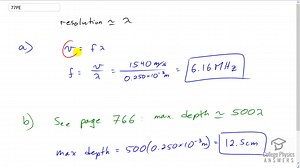 77PE
resolution ≃ λ
a) v = f λ
f = v/λ = 1540 m/s / 0.250×10⁻³ m = 6.16 MHz
b) See page 766: max depth ≃ 500λ
max depth = 500(0.250×10⁻³m) = 12.5cm
College Physics Answers